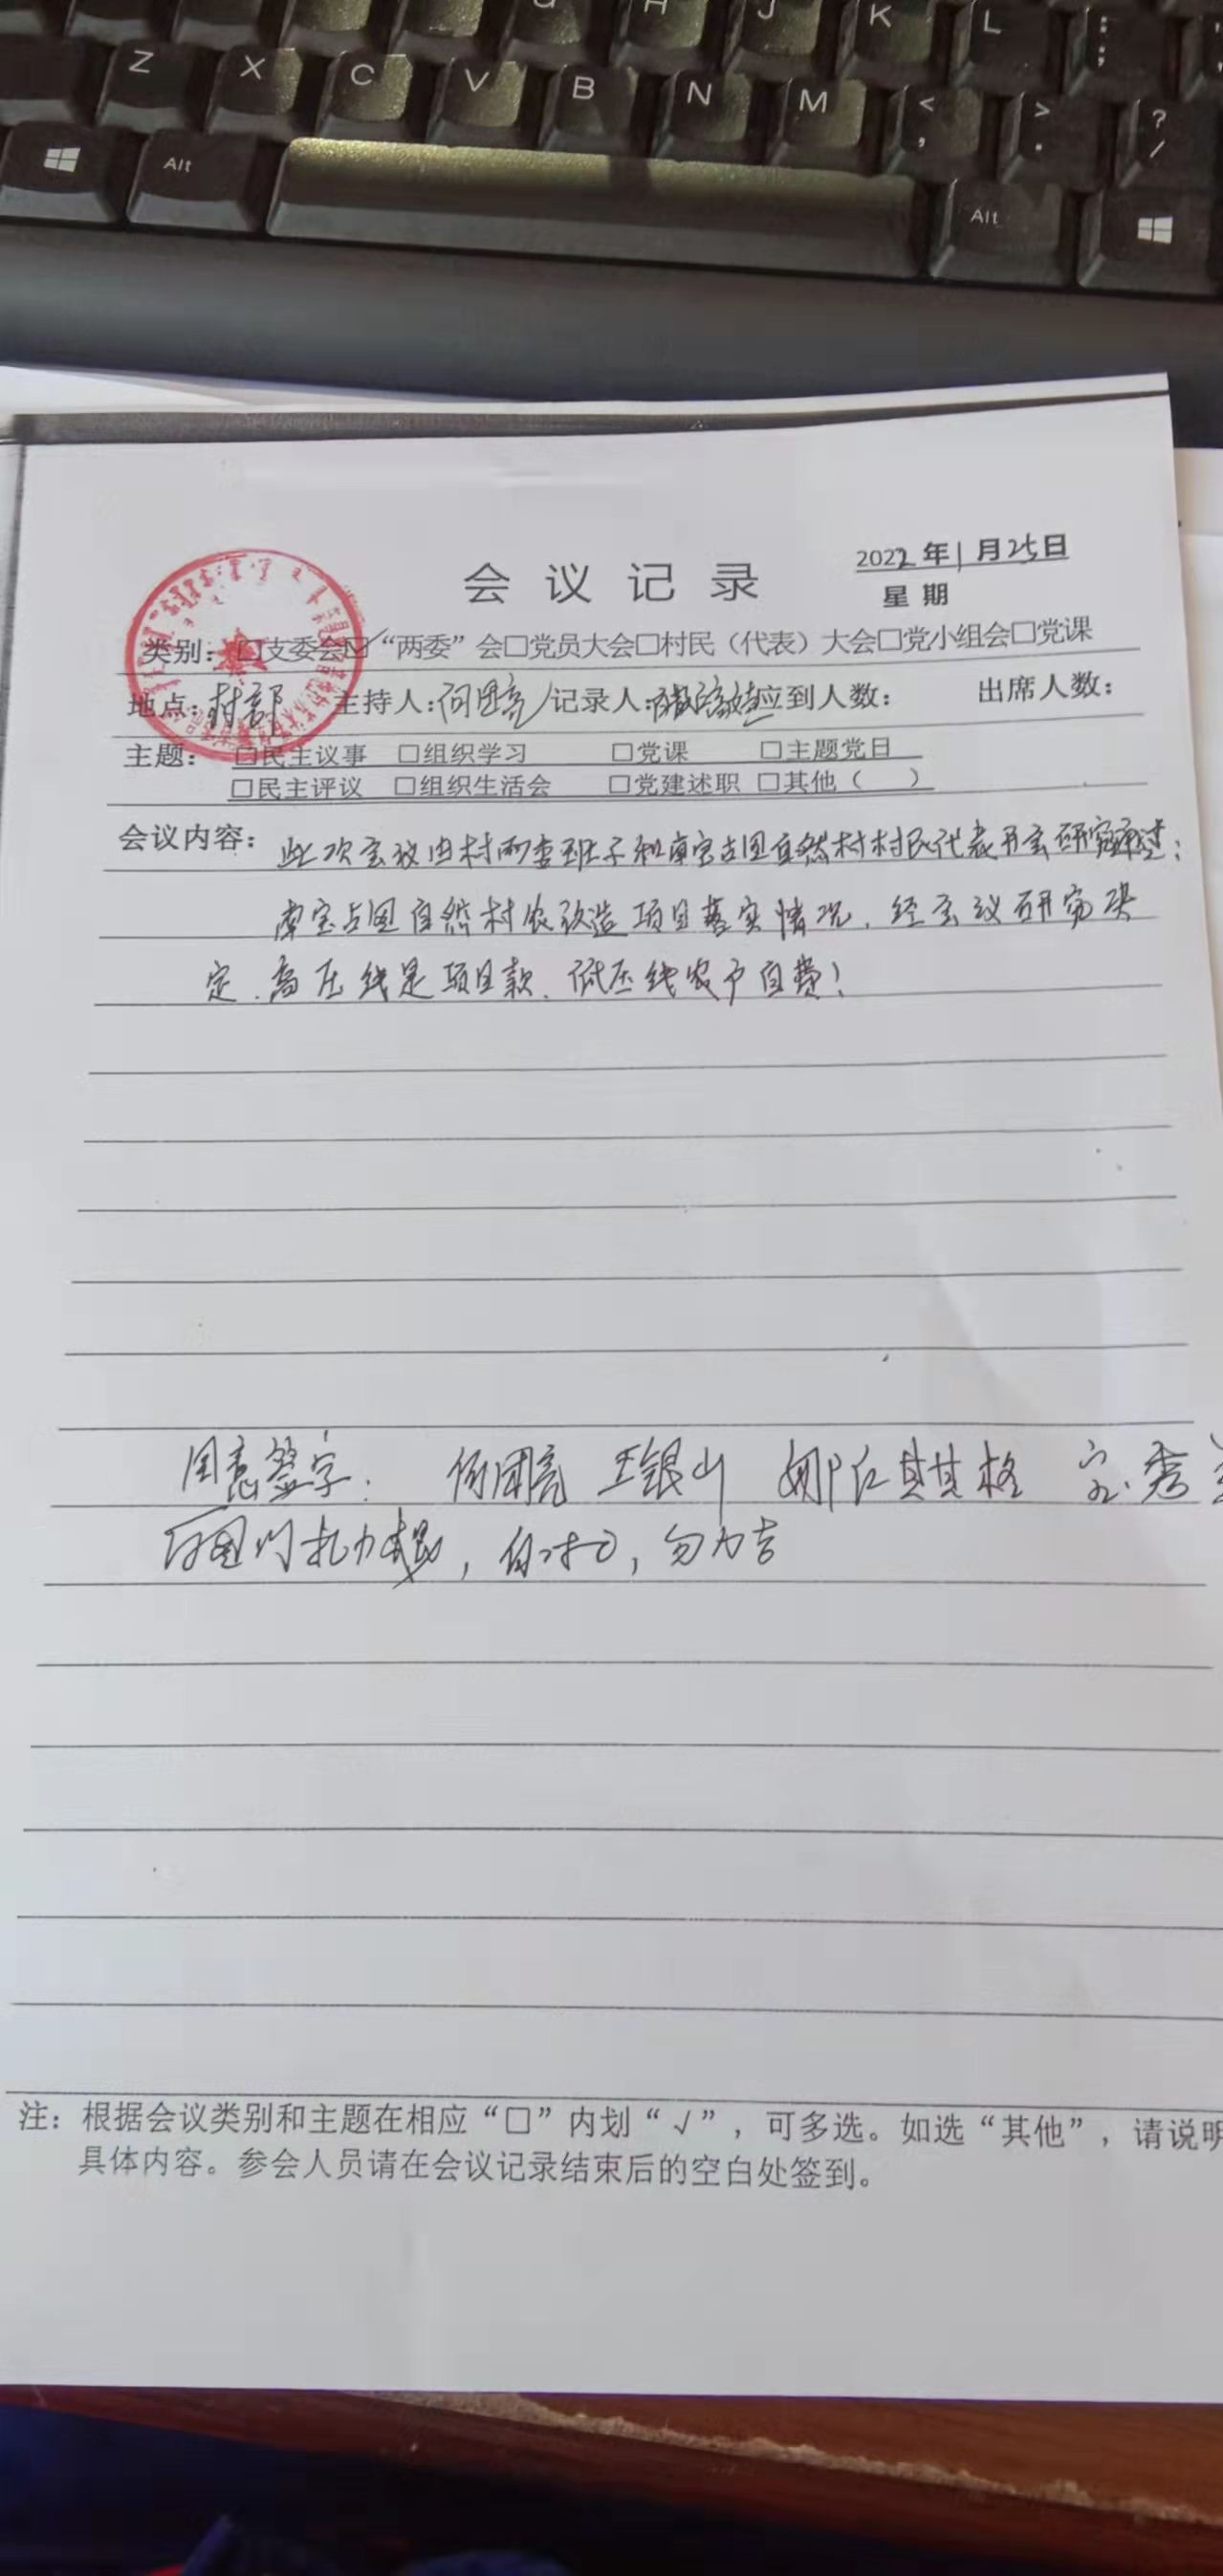 G H J K L : ;
Z X C V B N M < , > . ? /
Alt Alt
2022年1月25日
会议记录
星期
类别：□支委会☑“两委”会□党员大会□村民（代表）大会□党小组会□党课
地点：村部 主持人： 记录人： 应到人数： 出席人数：
主题：□民主议事 □组织学习 □党课 □主题党日
□民主评议 □组织生活会 □党建述职 □其他（ ）
会议内容：此次会议由村两委班子和南宝占图自然村村民代表开会研究通过：
南宝占图自然村农改造项目落实情况，经会议研究决
定，高压线是项目款、低压线农户自费！
同意签字： 何团亮 王银山 娜仁其其格 宝秀
白 ，勿力吉
注：根据会议类别和主题在相应“□”内划“√”，可多选。如选“其他”，请说明
具体内容。参会人员请在会议记录结束后的空白处签到。